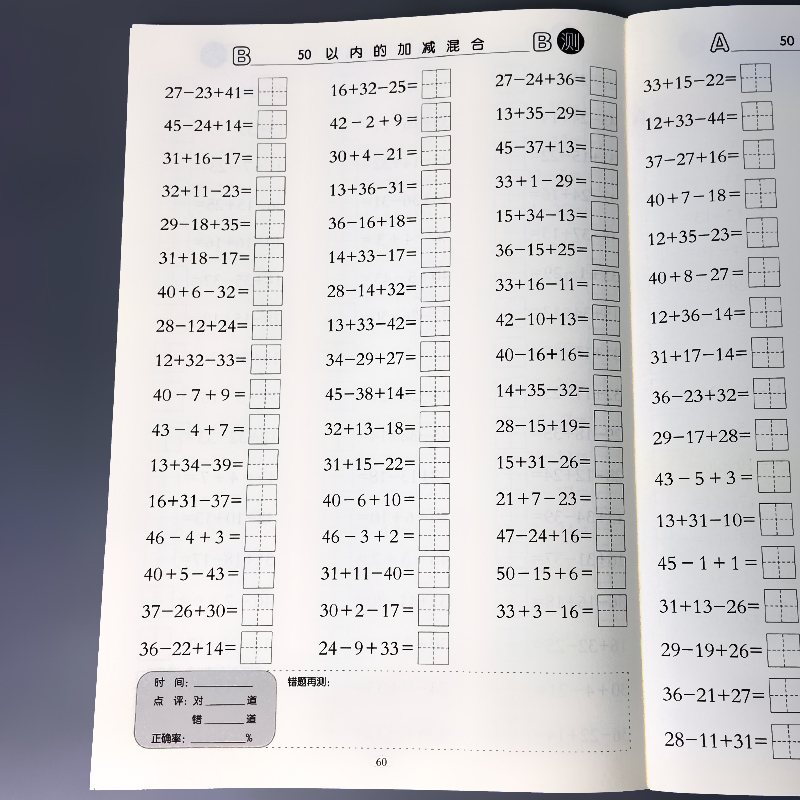 B 50 以内的加减混合 B 测
27−23+41=
45−24+14=
31+16−17=
32+11−23=
29−18+35=
31+18−17=
40+6−32=
28−12+24=
12+32−33=
40−7+9=
43−4+7=
13+34−39=
16+31−37=
46−4+3=
40+5−43=
37−26+30=
36−22+14=
16+32−25=
42−2+9=
30+4−21=
13+36−31=
36−16+18=
14+33−17=
28−14+32=
13+33−42=
34−29+27=
45−38+14=
32+13−18=
31+15−22=
40−6+10=
46−3+2=
31+11−40=
30+2−17=
24−9+33=
27−24+36=
13+35−29=
45−37+13=
33+1−29=
15+34−13=
36−15+25=
33+16−11=
42−10+13=
40−16+16=
14+35−32=
28−15+19=
15+31−26=
21+7−23=
47−24+16=
50−15+6=
33+3−16=
时 间:
点 评:对 道
错 道
正确率: %
错题再测:
60
A 50
33+15−22=
12+33−44=
37−27+16=
40+7−18=
12+35−23=
40+8−27=
12+36−14=
31+17−14=
36−23+32=
29−17+28=
43−5+3=
13+31−10=
45−1+1=
31+13−26=
29−19+26=
36−21+27=
28−11+31=